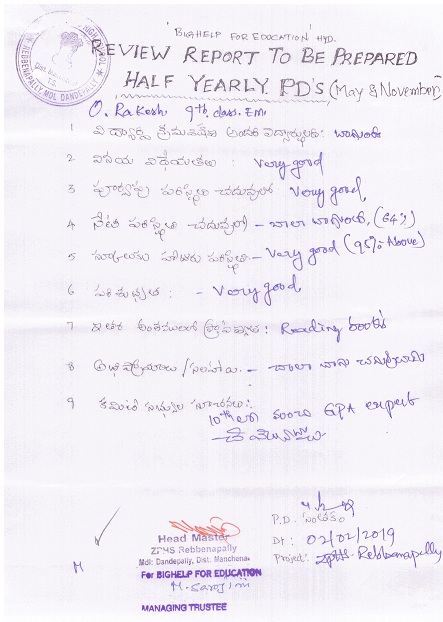 'BIGHELP FOR EDUCATION' HYD.
REVIEW REPORT TO BE PREPARED
HALF YEARLY PD'S (May & November)
O. Rakesh 9th class. E/m
1 విద్యార్థి క్రమశిక్షణ
2 వినయ విధేయతలు : Very good
3 పూర్వపు పరిస్థితి చదువులో Very good,
4 నేటి పరిస్థితి చదువులో - చాలా బాగుంది, (64%)
5 స్కూలుకు హాజరు పరిస్థితి - Very good (95% Above)
6 పరిశుభ్రత : - Very good,
7 ఇతర అంశములలో Reading
8 అభిప్రాయాలు / సలహాలు. - చాలా బాగా
9 కమిటీ సభ్యుల సూచనలు :
10th లో మంచి GPA
P.D. సంతకం
Dt : 02/02/2019
Project : ZPHS. Rebbanapally
Head Master
ZPHS Rebbenapally
Mdl: Dandepally, Dist. Mancherial
For BIGHELP FOR EDUCATION
MANAGING TRUSTEE
REBBENAPALLY MDL DANDEPALLY